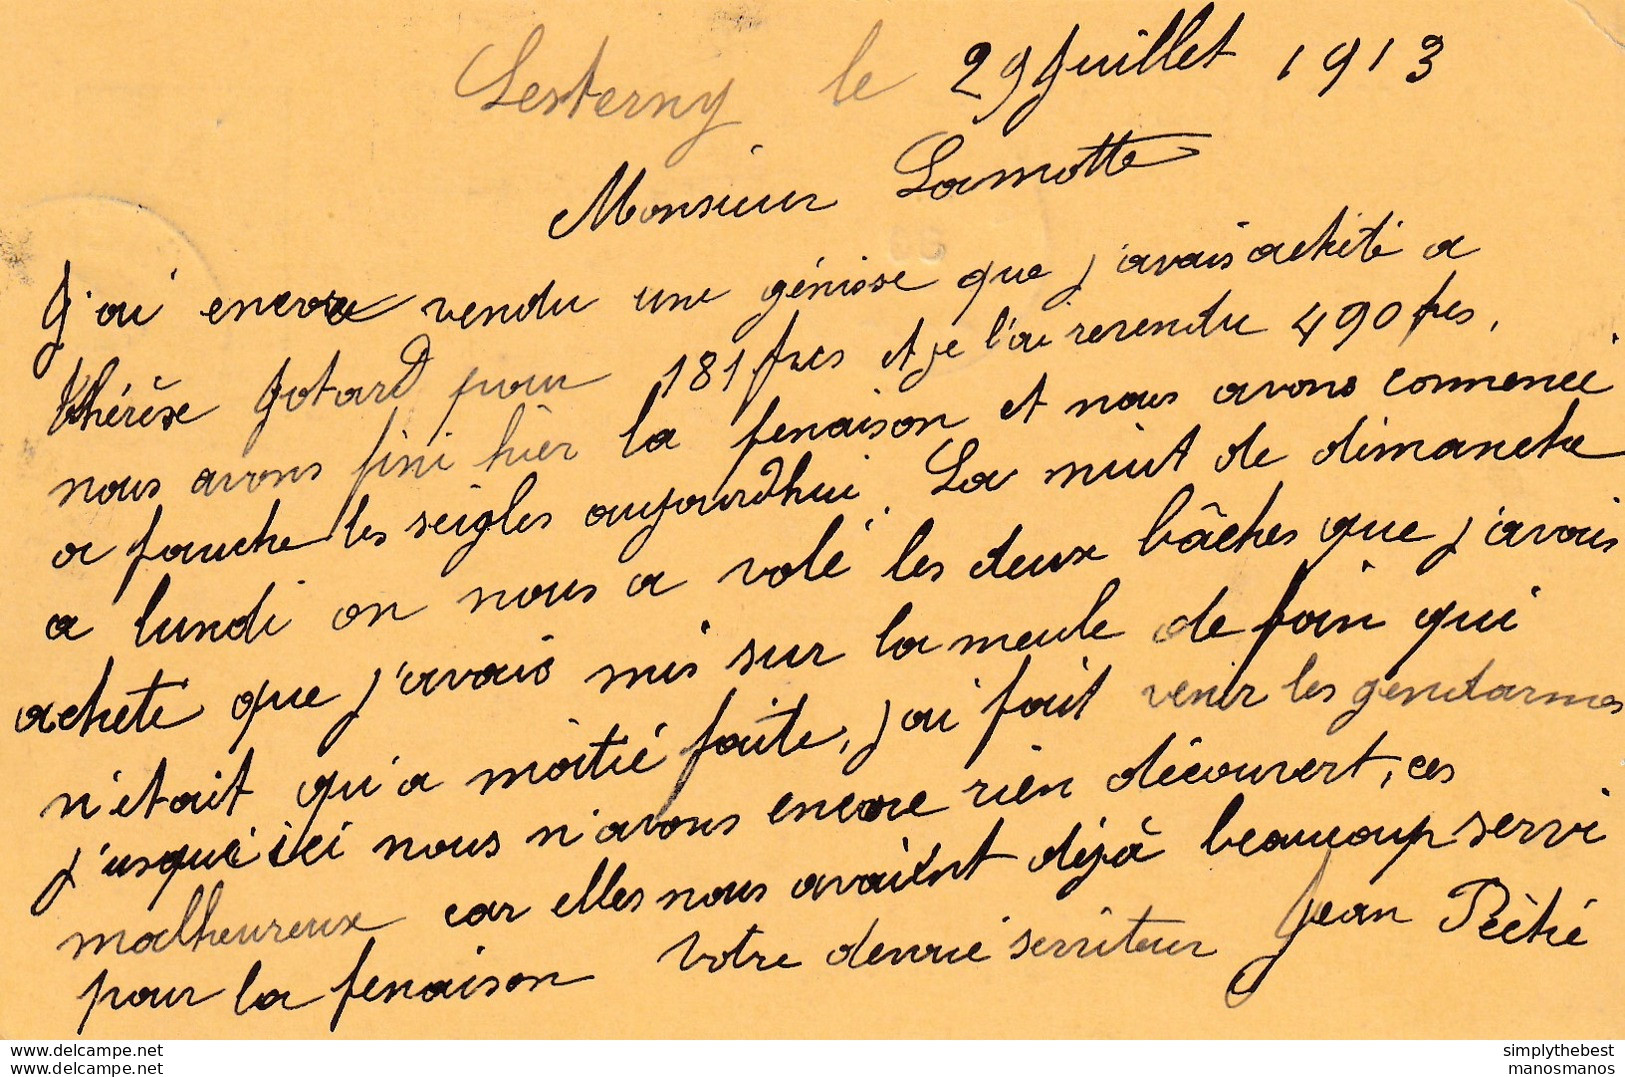 Lesterny le 29 Juillet 1913
Monsieur Lamotte
J'ai encore vendu une génisse que j'avais acheté a
Thérèse Gotard pour 181 frcs et je l'ai revendu 490 frcs,
nous avons fini hièr la fenaison et nous avons commencé
a fauche les seigles aujourd'hui. La nuit de dimanche
a lundi on nous a volé les deux bâches que j'avais
acheté que j'avais mis sur la meule de foin qui
n'était qu'a moitié faite, j'ai fait venir les gendarmes
j'usqu'ici nous n'avons encore rien découvert, ces
malheureux car elles nous avaient déjà beaucoup servi
pour la fenaison Votre dévoué serviteur Jean Pèché
simplythebest
manosmanos